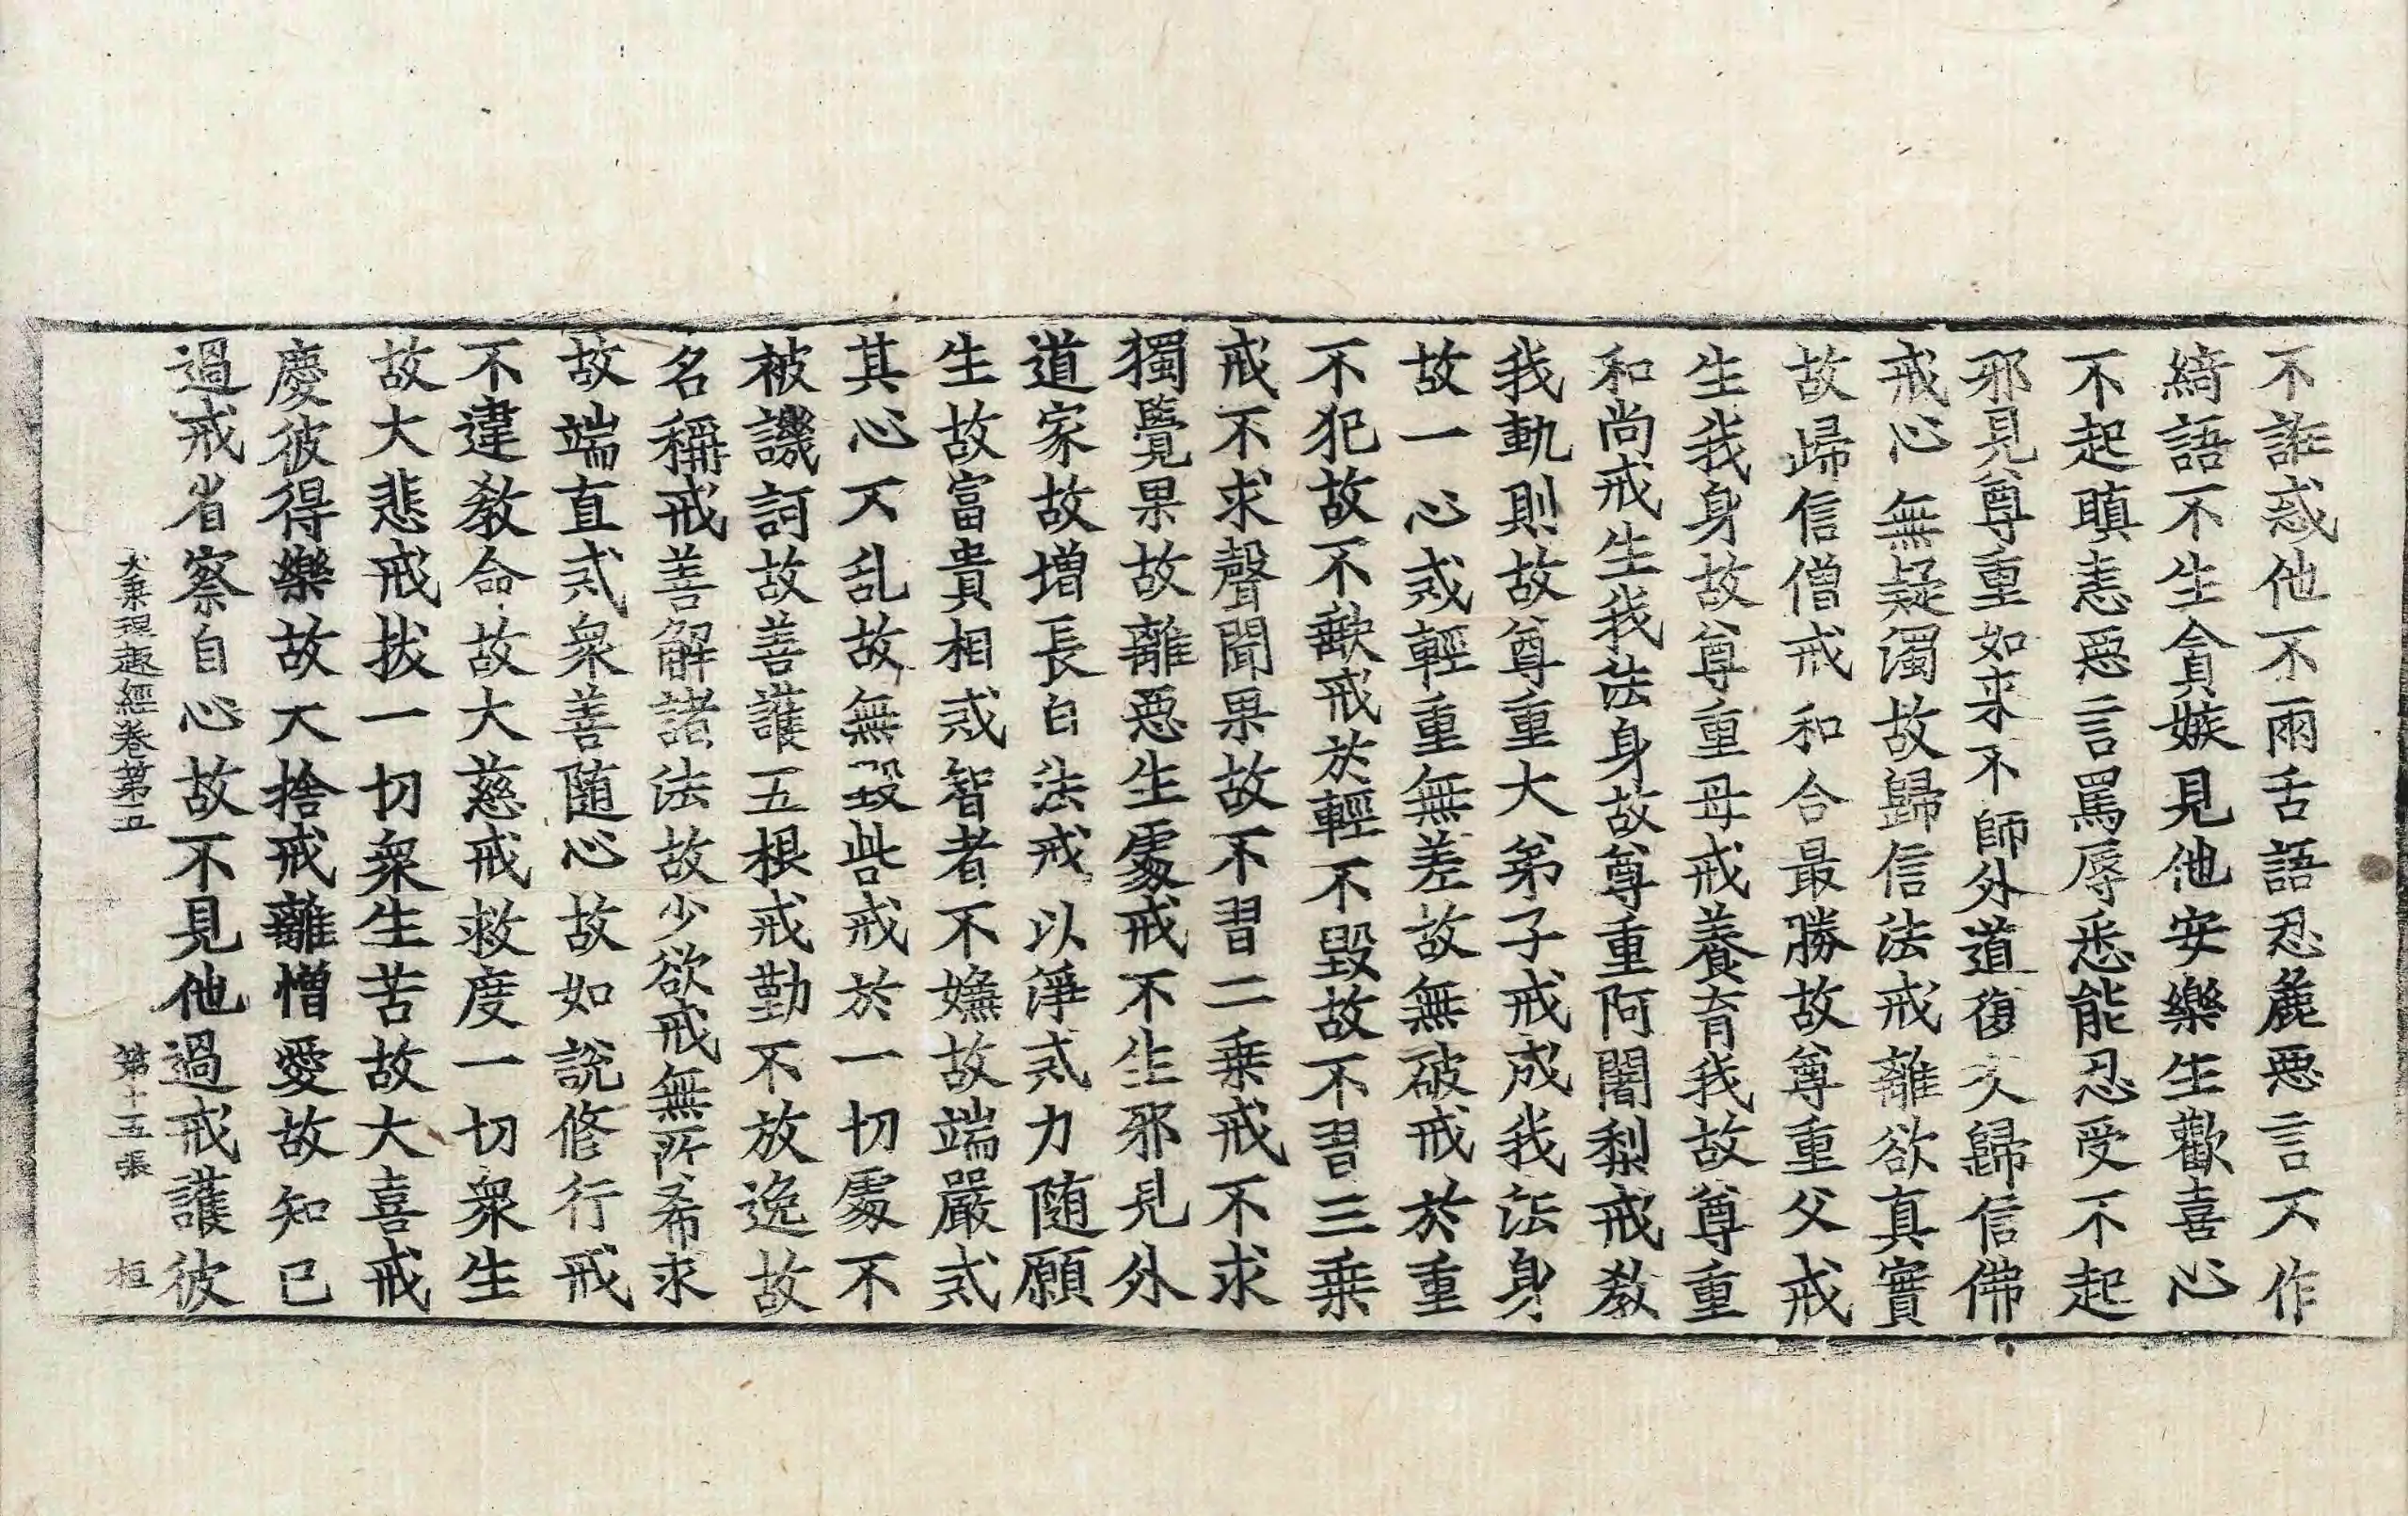 不誑惑他不兩舌語忍麁惡言不作
綺語不生貪嫉見他安樂生歡喜心
不起瞋恚惡言罵辱悉能忍受不起
邪見尊重如来不師外道復次歸信佛
戒心無疑濁故歸信法戒離欲真實
故歸信僧戒和合最勝故尊重父戒
生我身故尊重母戒養育我故尊重
和尚戒生我法身故尊重阿闍梨戒教
我軌則故尊重大弟子戒成我法身
故一心戒輕重無差故無破戒於重
不犯故不歡戒於輕不毀故不習三乗
戒不求聲聞果故不習二乗戒不求
獨覺果故離惡生處戒不生邪見外
道家故増長白法戒以淨戒力随願
生故富貴相戒智者不嫌故端嚴戒
其心不乱故無毀呰戒於一切處不
被譏訶故善護五根戒勤不放逸故
名稱戒善解諸法故少欲戒無所希求
故端直戒衆善随心故如說修行戒
不違教命故大慈戒救度一切衆生
故大悲戒拔一切衆生苦故大喜戒
慶彼得樂故大捨戒離憎愛故知已
過戒省察自心故不見他過戒護彼
大乗理趣經卷第五 第十五張 桓